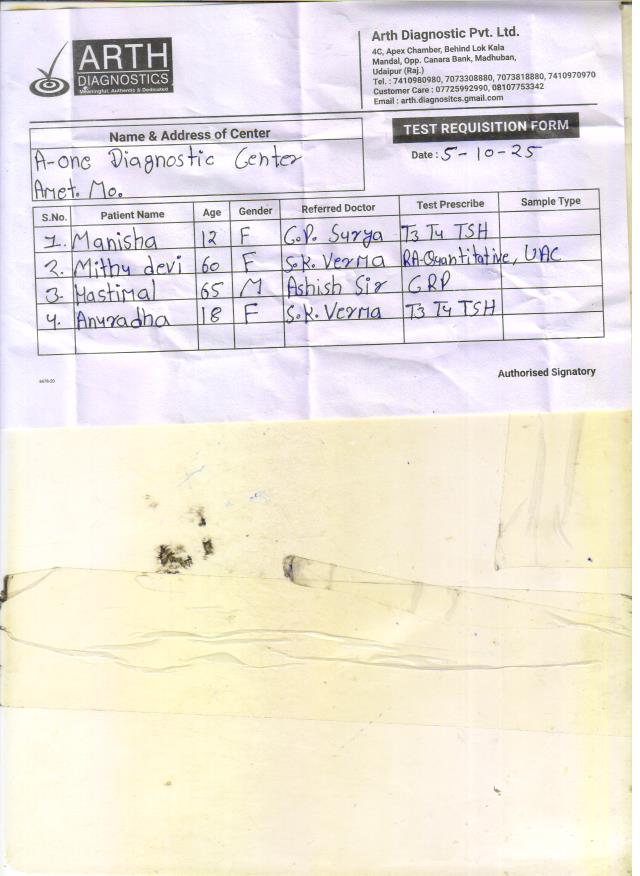 ARTH
DIAGNOSTICS
Meaningful, Authentic & Dedicated
Arth Diagnostic Pvt. Ltd.
4C, Apex Chamber, Behind Lok Kala
Mandal, Opp. Canara Bank, Madhuban,
Udaipur (Raj.)
Tel. : 7410980980, 7073308880, 7073818880, 7410970970
Customer Care : 07725992990, 08107753342
Email : arth.diagnositcs.gmail.com
Name & Address of Center
A-one Diagnostic Center
Amet. Mo.
TEST REQUISITION FORM
Date : 5-10-25
S.No. Patient Name Age Gender Referred Doctor Test Prescribe Sample Type
1. Manisha 12 F G.P. Surya T3 T4 TSH
2. Mithu devi 60 F S.K. Verma RA-Quantitative, UAC
3. Hastimal 65 M Ashish Sir CRP
4. Anuradha 18 F S.K. Verma T3 T4 TSH
Authorised Signatory